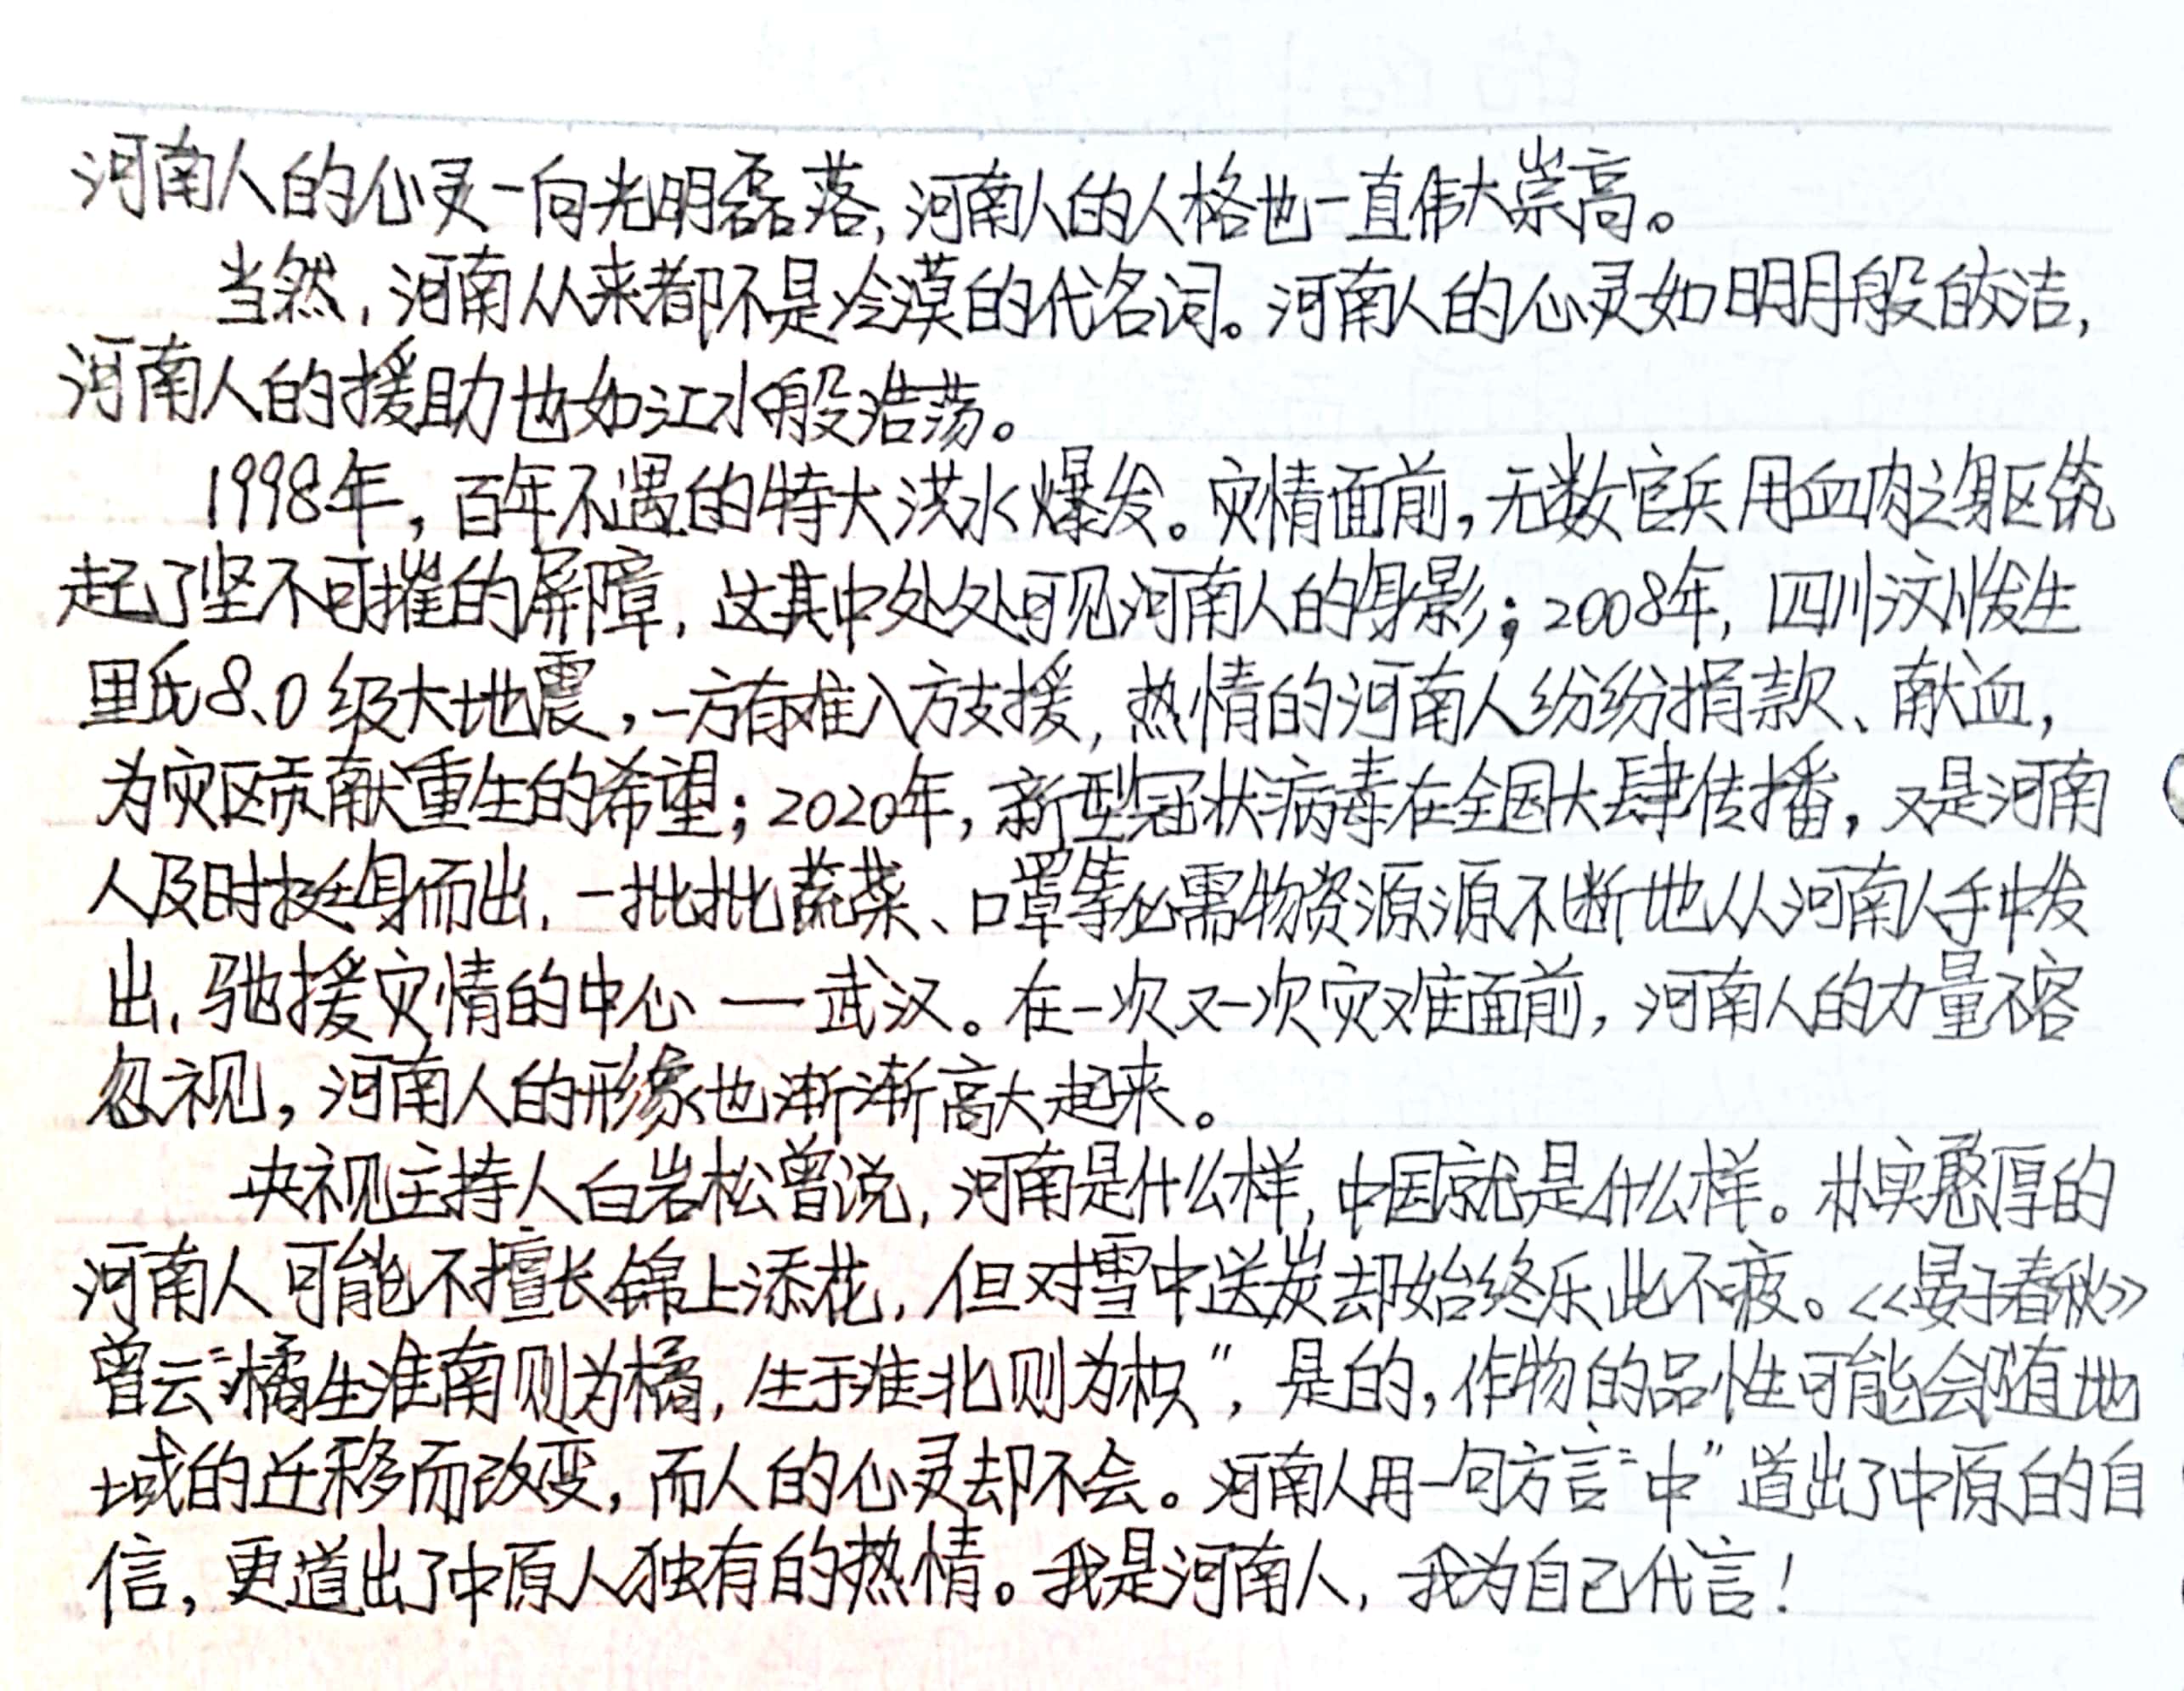 河南人的心灵一向光明磊落,河南人的人格也一直伟大崇高。
当然,河南从来都不是冷漠的代名词。河南人的心灵如明月般皎洁,
河南人的援助也如江水般浩荡。
1998年,百年不遇的特大洪水爆发。灾情面前,无数官兵用血肉之身区筑
起了坚不可摧的屏障,这其中处处可见河南人的身影;2008年,四川汶川发生
里氏8.0级大地震,一方有难八方支援,热情的河南人纷纷捐款、献血,
为灾区贡献重生的希望;2020年,新型冠状病毒在全国大肆传播,又是河南
人及时挺身而出,一批批蔬菜、口罩等必需物资源源不断地从河南人手中发
出,驰援灾情的中心——武汉。在一次又一次灾难面前,河南人的力量不容
忽视,河南人的形象也渐渐高大起来。
央视主持人白岩松曾说,河南是什么样,中国就是什么样。朴实憨厚的
河南人可能不擅长锦上添花,但对雪中送炭却始终乐此不疲。《晏子春秋》
曾云“橘生淮南则为橘,生于淮北则为枳”,是的,作物的品性可能会随地
域的迁移而改变,而人的心灵却不会。河南人用一句方言“中”道出了中原的自
信,更道出了中原人独有的热情。我是河南人,我为自己代言!